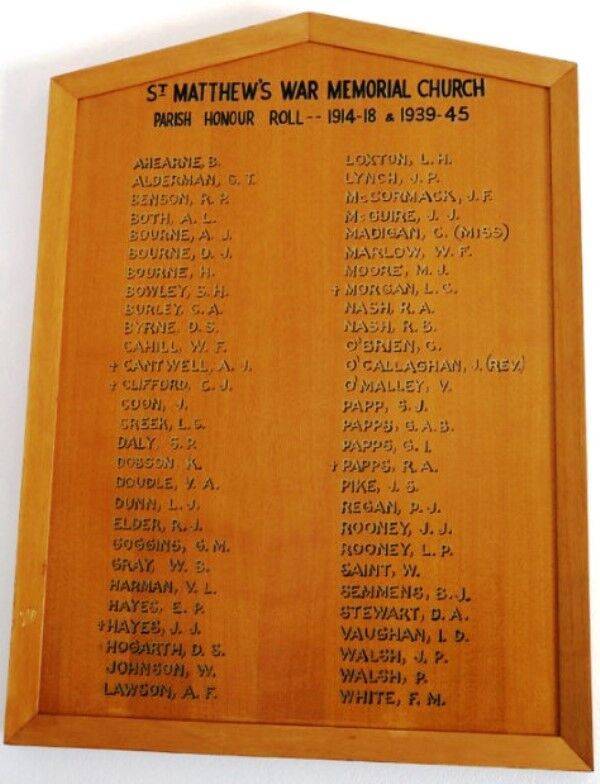 ST MATTHEW'S WAR MEMORIAL CHURCH
PARISH HONOUR ROLL -- 1914-18 & 1939-45
AHEARNE, B.
ALDERMAN, G. T.
BENSON, R. P.
BOTH, A. L.
BOURNE, A. J.
BOURNE, D. J.
BOURNE, H.
BOWLEY, S. H.
BURLEY, C. A.
BYRNE, D. S.
CAHILL, W. F.
† CANTWELL, A. J.
† CLIFFORD, C. J.
COON, J.
CREEK, L. G.
DALY, S. P.
DOBSON, K.
DOUDLE, V. A.
DUNN, L. J.
ELDER, R. J.
GOGGINS, G. M.
GRAY, W. S.
HARMAN, V. L.
HAYES, E. P.
† HAYES, J. J.
† HOGARTH, D. S.
JOHNSON, W.
LAWSON, A. F.
LOXTON, L. H.
LYNCH, J. P.
McCORMACK, J. F.
McGUIRE, J. J.
MADIGAN, C. (MISS)
MARLOW, W. F.
MOORE, M. J.
† MORGAN, L. C.
NASH, R. A.
NASH, R. B.
O'BRIEN, G.
O'CALLAGHAN, J. (REV.)
O'MALLEY, V.
PAPP, S. J.
PAPPS, G. A. B.
PAPPS, G. I.
† PAPPS, R. A.
PIKE, J. S.
REGAN, P. J.
ROONEY, J. J.
ROONEY, L. P.
SAINT, W.
SEMMENS, B. J.
STEWART, D. A.
VAUGHAN, I. D.
WALSH, J. P.
WALSH, P.
WHITE, F. M.